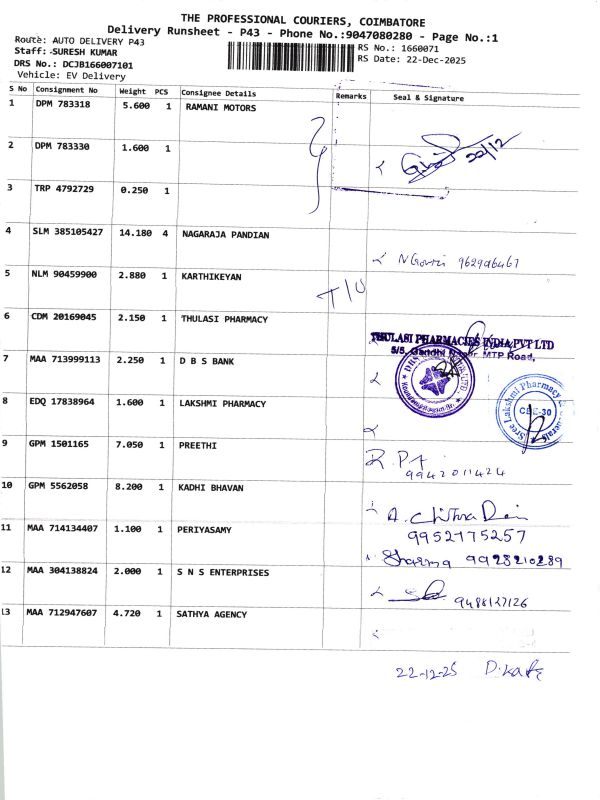 THE PROFESSIONAL COURIERS, COIMBATORE
Delivery Runsheet - P43 - Phone No.:9047080280 - Page No.:1
Route: AUTO DELIVERY P43
Staff: SURESH KUMAR
DRS No.: DCJB166007101
Vehicle: EV Delivery
RS No.: 1660071
RS Date: 22-Dec-2025
S No Consignment No Weight PCS Consignee Details Remarks Seal & Signature
1 DPM 783318 5.600 1 RAMANI MOTORS
2 DPM 783330 1.600 1
22/12
3 TRP 4792729 0.250 1
4 SLM 385105427 14.180 4 NAGARAJA PANDIAN
5 NLM 90459900 2.880 1 KARTHIKEYAN
T/U
6 CDM 20169045 2.150 1 THULASI PHARMACY
THULASI PHARMACIES INDIA PVT LTD
5/5, Gandhi Nagar, MTP Road,
7 MAA 713999113 2.250 1 D B S BANK
8 EDQ 17838964 1.600 1 LAKSHMI PHARMACY
Sree Lakshmi Pharmacy
CBE-30
9 GPM 1501165 7.050 1 PREETHI
9942011424
10 GPM 5562058 8.200 1 KADHI BHAVAN
9952175257
11 MAA 714134407 1.100 1 PERIYASAMY
Sharma 9928210289
12 MAA 304138824 2.000 1 S N S ENTERPRISES
9488127126
13 MAA 712947607 4.720 1 SATHYA AGENCY
22-12-25